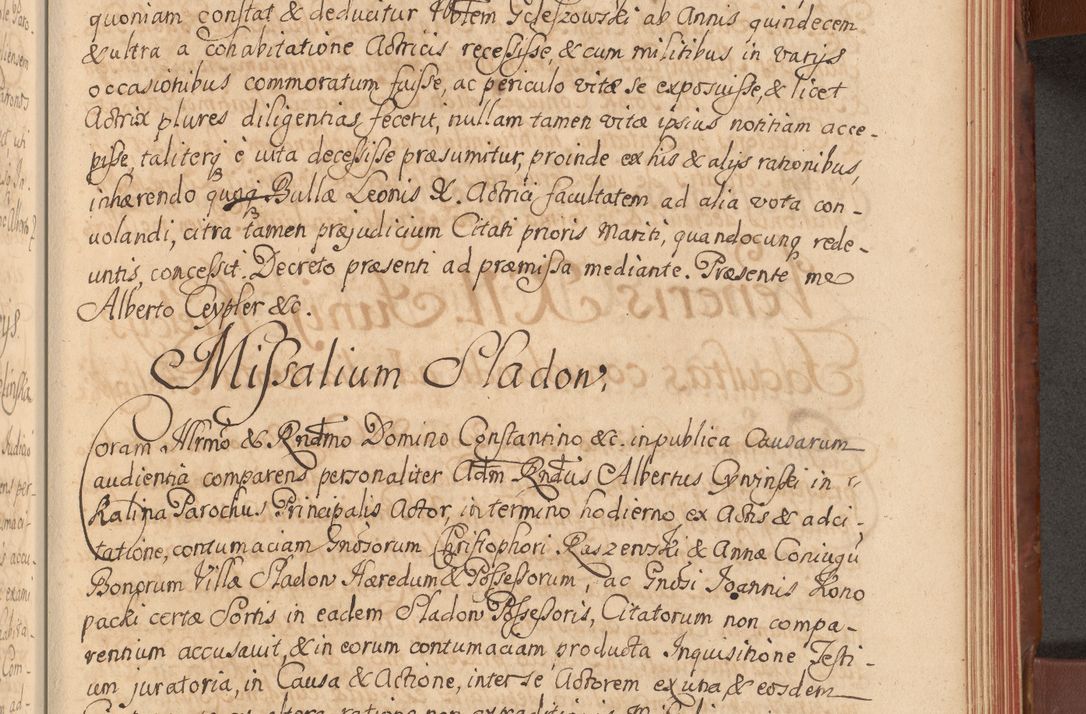 quoniam constat & deducitur Nobilem Gcleszowski ab Annis quindecem
& ultra a cohabitatione Actricis recessisse, & cum militibus in varijs
occasionibus commoratum fuisse, ac periculo vitæ se exposuisse, & licet
Actrix plures diligentias fecerit, nullam tamen vitæ ipsius notitiam acce-
pisse, taliterq̃ è vita decessisse præsumitur, proinde ex his & alijs rationibus,
inhærendo Bullæ Leonis X. Actrici facultatem ad alia vota con-
volandi, citra tamen præjudicium Citati prioris Mariti, quandocunq̃ rede-
untis, concessit. Decreto præsenti ad præmissa mediante. Præsente me
Alberto Ceypler &c.
Missalium Sladow,
Coram Illrmo & Rndmo Domino Constantino &c. in publica Causarum
audientia comparens personaliter Adm Rndus Albertus Cywinski in
Kalina Parochus Principalis Actor, in termino hodierno ex Actis & ad ci-
tatione, contumaciam Gnosorum Christophori Raszewski & Annæ Coniugũ
Bonorum Villæ Sladow Hæredum & Possessorum, ac Gnosi Joannis Kono
packi certæ Sortis in eadem Sladow Possessoris, Citatorum non compa-
rentium accusavit, & in eorum contumaciam, producta Inquisitione Testi-
um juratoria, in Causa & Actione, inter se Actorem ex una & eosdem